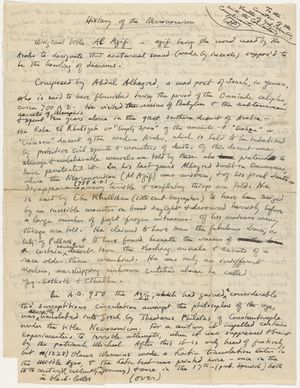 History of the Necronomicon
Original title Al Azif — azif being the word used by the
Arabs to designate that nocturnal sound (made by insects) supposed to
be the howling of daemons.
Composed by Abdul Alhazred, a mad poet of Sanaá, in Yemen,
who is said to have flourished during the period of the Ommiade caliphs,
circa 700 A.D. He visited the ruins of Babylon & the subterranean
secrets of Memphis
& spent ten years alone in the great southern desert of Arabia —
the Roba El Khaliyeh or "Empty Space" of the ancients & "Dahna" or
"Crimson" desert of the modern Arabs, which is held to be inhabited
by protective evil spirits & monsters of death. Of this desert many
strange & unbelievable marvels are told by those who pretend to
have penetrated it. In his last years Alhazred dwelt in Damascus,
where the Necronomicon (Al Azif) was written, & of his final death or
disappearance (738 A.D.) many terrible & conflicting things are told. He
is said by Ebn Khallikan (12th cent. biographer) to have been seized
by an invisible monster in broad daylight & devoured horribly before
a large number of fright-frozen witnesses. Of his madness many
things are told. He claimed to have seen the fabulous Irem, or
City of Pillars, & to have found beneath the ruins of
a certain nameless desert town the shocking annals & secrets of a
race older than mankind. He was only an indifferent
Moslem, worshipping unknown entities whom he called
Yog-Sothoth & Cthulhu.
In A.D. 950 the Azif, which had gained considerable
tho' surreptitious circulation amongst the philosophers of the age,
was secretly translated into Greek by Theodorus Philetas of Constantinople
under the title Necronomicon. For a century it impelled certain
experimenters to terrible attempts, when it was suppressed & burnt
by the patriarch Michael. After this it is only heard of furtively,
but (1228) Olaus Wormius made a Latin translation later in
the Middle Ages & the Latin text was printed twice — once in the
15th century in black-letter (evidently in Germany) & once in the 17th — (prob. Spanish)
(over)